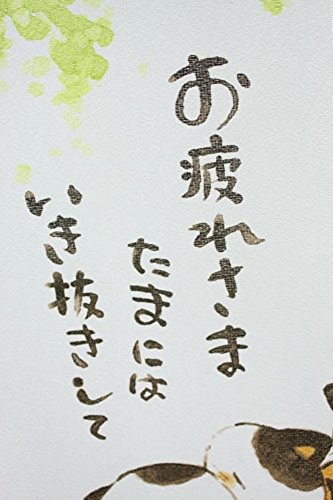 お疲れさま
たまには
いき抜きして